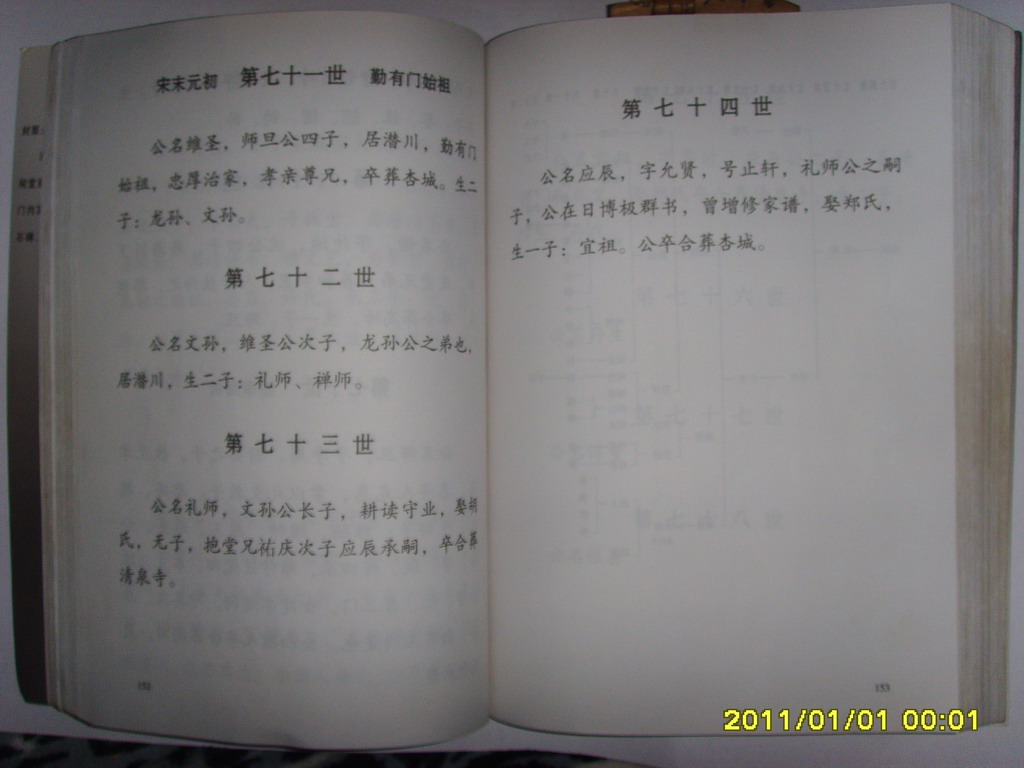 宋末元初 第七十一世 勤有门始祖
公名维圣，师旦公四子，居潜川，勤有门
始祖，忠厚治家，孝亲尊兄，卒葬杏城。生二
子：龙孙、文孙。
第七十二世
公名文孙，维圣公次子，龙孙公之弟也，
居潜川，生二子：礼师、禅师。
第七十三世
公名礼师，文孙公长子，耕读守业，娶胡
氏，无子，抱堂兄祐庆次子应辰承嗣，卒合葬
清泉寺。
152
第七十四世
公名应辰，字允贤，号止轩，礼师公之嗣
子，公在日博极群书，曾增修家谱，娶郑氏，
生一子：宜祖。公卒合葬杏城。
153
2011/01/01 00:01